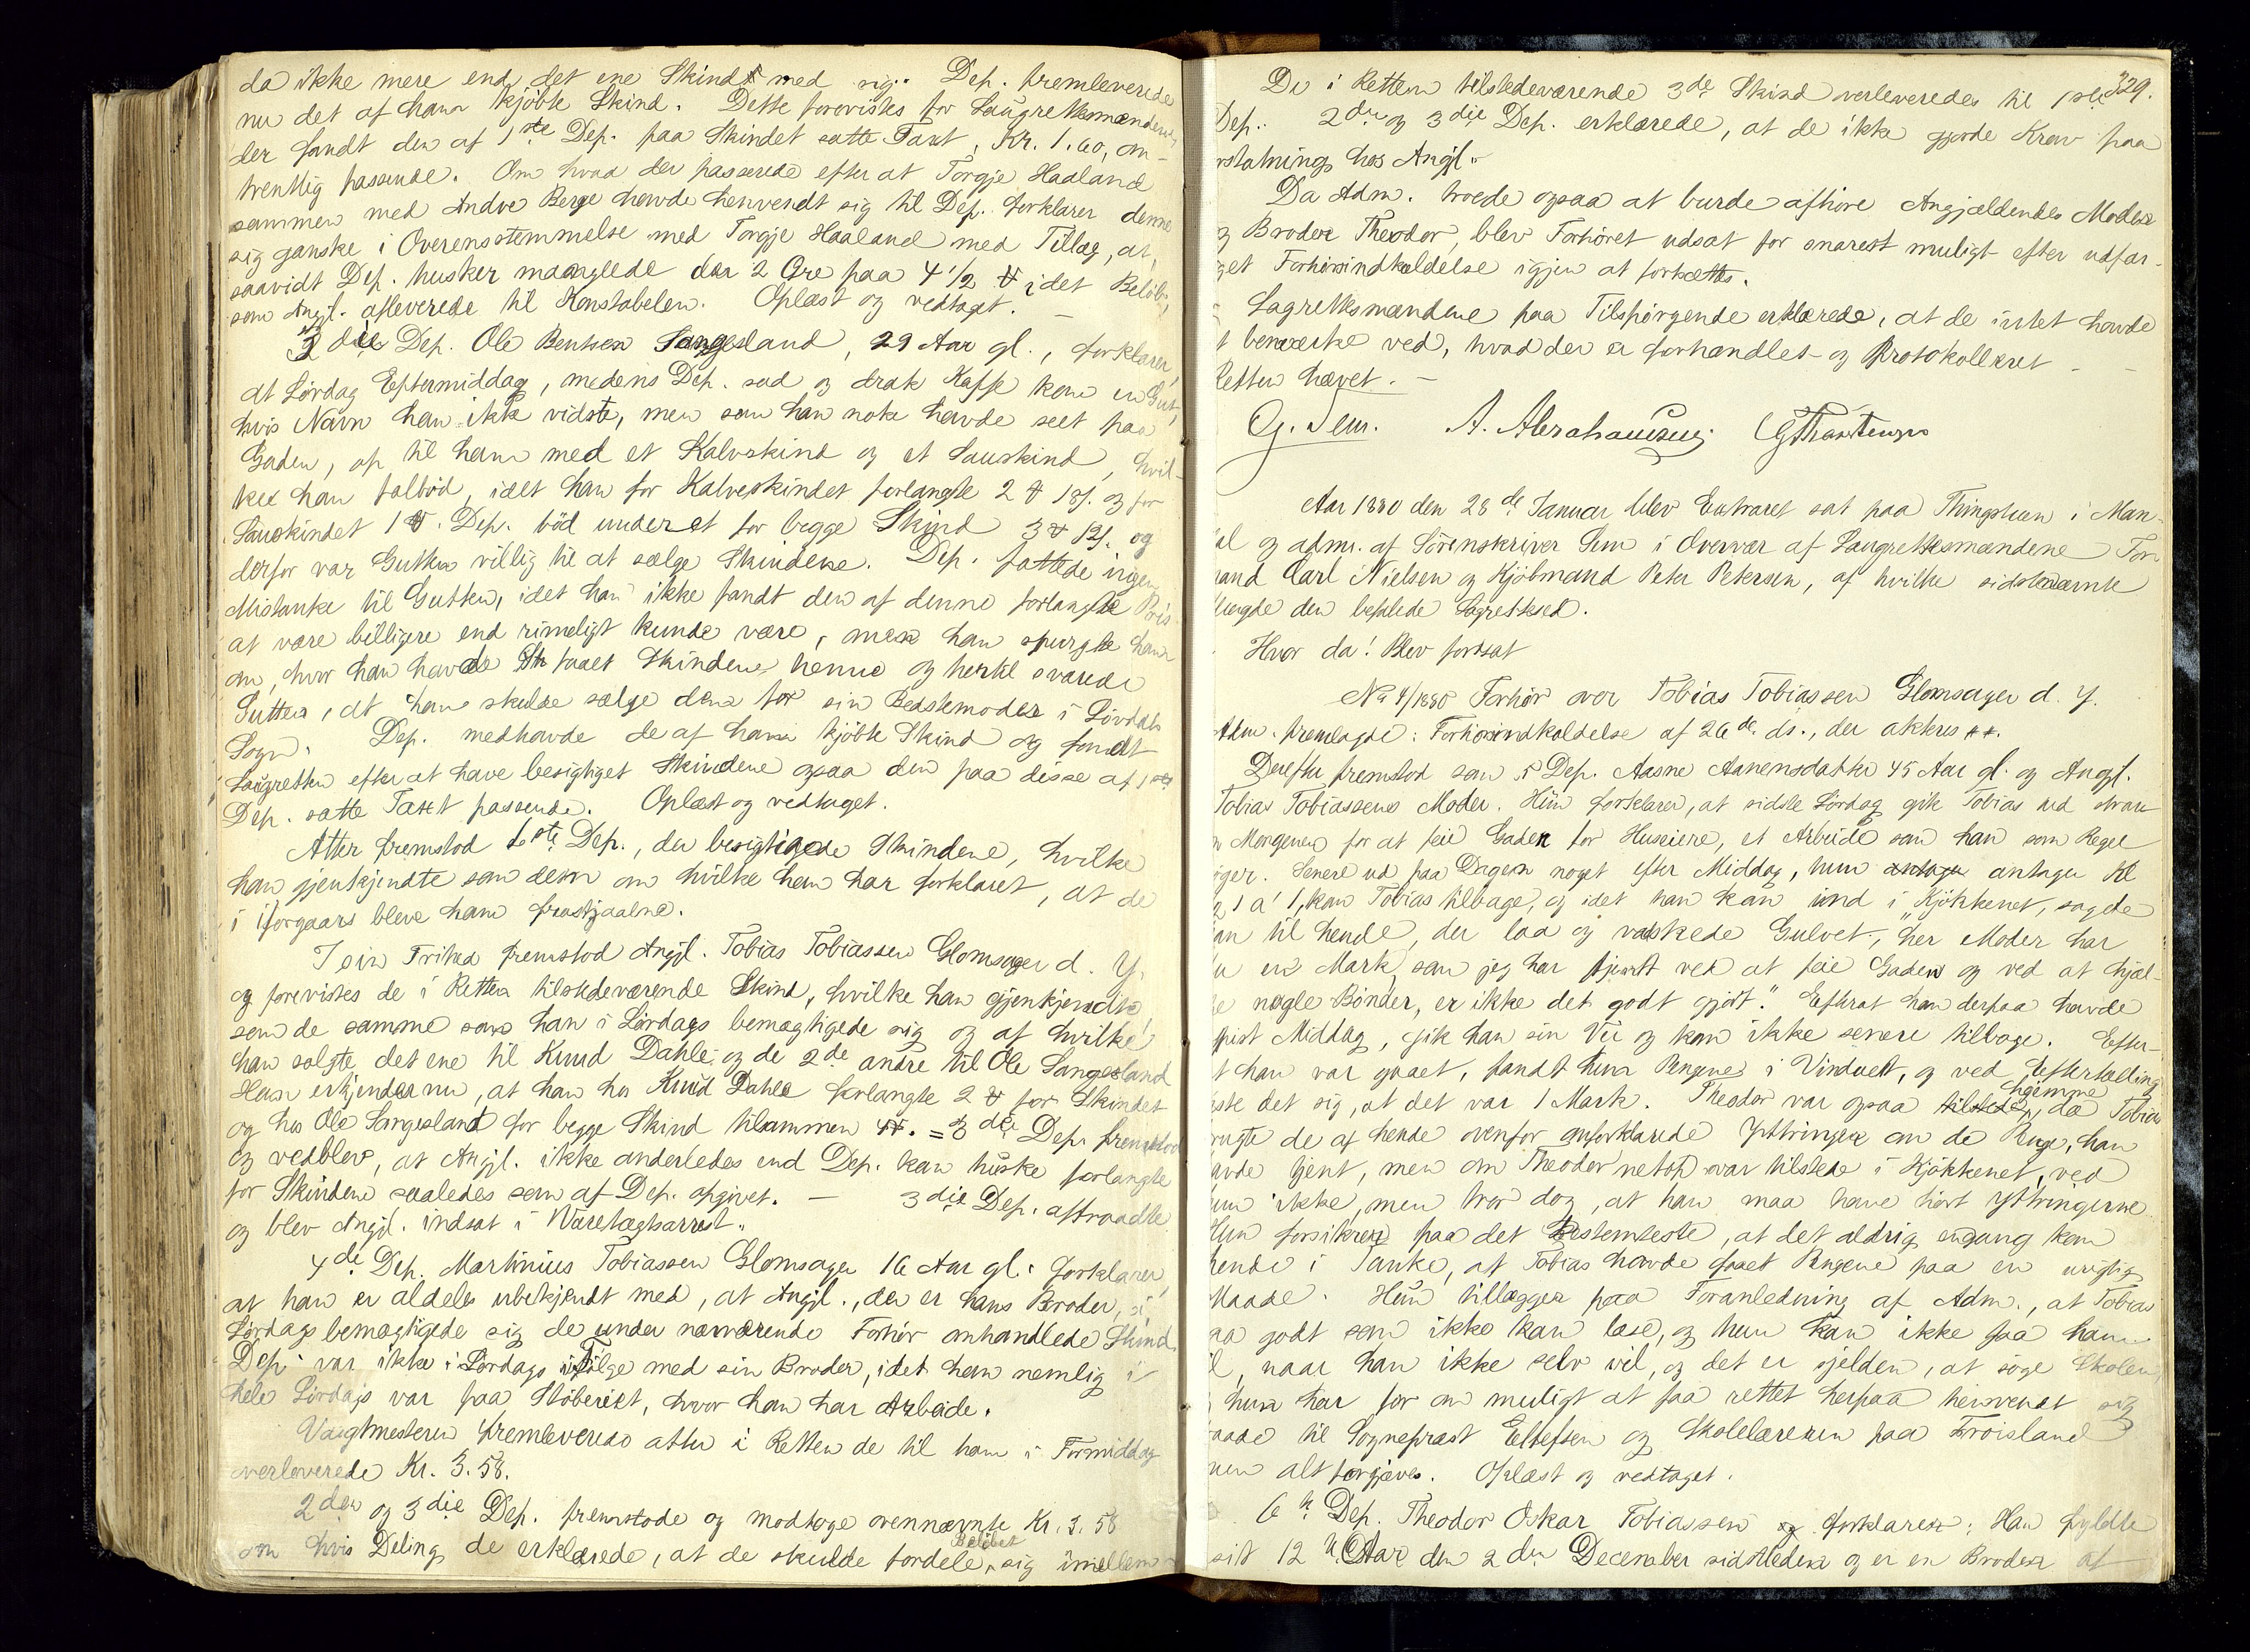 da ikke mere end det ene Skind med sig. Dep. fremleverede
nu det af ham kjøbte Skind. Dette forevistes for Laugrettesmændene,
der fandt den af 1ste Dep. paa Skindet satte Taxt, Kr. 1.60, om-
trentlig passende. Om hvad der passerede efter at Torgje Haaland
sammen med Andre Berge havde henvendt sig til Dep. forklarer denne
sig ganske i Overensstemmelse med Torgje Haaland med Tillæg, at,
saavidt Dep. husker manglede der 2 Øre paa 4 1/2 ℔ i det Beløb,
som Angjl. afleverede til Konstabelen. Oplæst og vedtaget. —
3die Dep. Ole Bentsen Sangesland, 29 Aar gl., forklarer,
at Lørdag Eftermiddag, medens Dep. sad og drak Kaffe kom en Gut,
hvis Navn han ikke vidste, men som han nok havde seet paa
Gaden, op til ham med et Kalveskind og et Saueskind, hvil-
ket han falbød, idet han for Kalveskindet forlangte 2 ℔ 18 s. og for
Saueskindet 1 ℔. Dep. bød under et for begge Skind 3 ℔ 12 s. og
derfor var Gutten villig til at sælge Skindene. Dep. fattede ingen
Mistanke til Gutten, idet han ikke fandt den af denne forlangte Pris
at være billigere end rimeligt kunde være, men han spurgte ham
om, hvor han havde faaet Skindene henne og hertil svarede
Gutten, at han skulde sælge dem for sin Bedstemoder i Løvdals
Sogn. Dep. medhavde de af ham kjøbte Skind og fandt
Laugretten efter at have besigtiget Skindene ogsaa den paa disse af 1ste
Dep. satte Taxt passende. Oplæst og vedtaget.
Atter fremstod 1ste Dep., der besigtigede Skindene, hvilke
han gjenkjendte som dem om hvilke han har forklaret, at de
i iforgaars bleve ham frastjaalne.
I sin Frihed fremstod Angjl. Tobias Tobiassen Glomsager d. Y.
og forevistes de i Retten tilstedeværende Skind, hvilke han gjenkjendte
som de samme som han i Lørdags bemægtigede sig og af hvilke
han solgte det ene til Knud Dahle og de 2de andre til Ole Sangesland
Han erkjender nu, at han hos Knud Dahle forlangte 2 ℔ for Skindet
og hos Ole Sangesland for begge Skind tilsammen 4 ℔. = 3die Dep. fremstod
og vedblev, at Angjl. ikke anderledes end Dep. kan huske forlangte
for Skindene saaledes som af Dep. opgivet. — 3die Dep. aftraadte
og blev Angjl. indsat i Varetægtsarrest.
4de Dep. Martinius Tobiassen Glomsager 16 Aar gl. forklarer,
at han er aldeles ubekjendt med, at Angjl., der er hans Broder, i
Lørdags bemægtigede sig de under nærværende Forhør omhandlede Skind.
Dep. var ikke i Lørdags ifølge med sin Broder, idet han nemlig i
hele Lørdags var paa Støberiet, hvor han har Arbeide.
Vægtmesteren fremleverede atter i Retten de til ham i Formiddag
overleverede Kr. 3.58.
2den og 3die Dep. fremstode og modtoge ovennævnte Kr. 3.58
om hvis Deling de erklærede, at de skulde fordele Beløbet sig imellem
329.
De i Retten tilstedeværende 3de Skind overleveredes til 1ste
Dep. 2den og 3die Dep. erklærede, at de ikke gjorde Krav paa
rstatning hos Angjl.
Da Adm. troede ogsaa at burde afhøre Angjældendes Moder
g Broder Theodor, blev Forhøret udsat for snarest muligt efter udfær-
get Forhørsindkaldelse igjen at fortsættes.
Lagrettesmændene paa Tilspørgende erklærede, at de intet havde
t bemærke ved, hvad der er forhandlet og Protokolleret
Retten hævet. —
G. Sem. A. Abrahamsen
Aar 1880 den 28de Januar blev Extraret sat paa Thingstuen i Man-
al og adm. af Sørenskriver Sem i Overvær af Laugrettesmændene For-
mand Carl Nielsen og Kjøbmand Peter Petersen, af hvilke sidstnævnte
flagde den befalede Lagrettesed.
Hvor da! Blev fortsat
No 4/1880 Forhør over Tobias Tobiassen Glomsager d. Y.
Adm. fremlagde: Forhørsindkaldelse af 26de ds., der akteres **.
Derefter fremstod som 5 Dep. Aasne Aanensdatter 45 Aar gl. og Angjl.
Tobias Tobiassens Moder. Hun forklarer, at sidste Lørdag gik Tobias ud strax
Morgenen for at feie Gaden for Huseiere, et Arbeide som han som Regel
øger. Senere ud paa Dagen noget efter Middag, hun antager Kl
1 a' 1, kom Tobias tilbage, og idet han kom ind i Kjøkkenet, sagde
an til hende, der laa og vaskede Gulvet, "her Moder har
u en Mark, som jeg har tjent ved at feie Gaden og ved at hjæl-
e nogle Bønder, er ikke det godt gjort." Efterat han derpaa havde
spist Middag, gik han sin Vei og kom ikke senere tilbage. Efter-
t han var gaaet, fandt hun Pengene i Vinduet, og ved Eftertælling
iste det sig, at det var 1 Mark. Theodor var ogsaa hjemme, da Tobias
rugte de af hende ovenfor anforklarede Yttringer om de Penge, han
avde tjent, men om Theodor netop var tilstede i Kjøkkenet, ved
un ikke, men tror dog, at han maa have hørt Yttringerne.
Hun forsikrer paa det Bestemteste, at det aldrig engang kom
hende i Tanke, at Tobias havde faaet Pengene paa en urigtig
Maade. Hun tillægger paa Foranledning af Adm., at Tobias
aa godt som ikke kan læse, og hun kan ikke faa ham
il, naar han ikke selv vil, og det er sjelden, at søge Skolen,
hun har for om muligt at faa rettet herpaa henvendt sig
aade til Sogneprest Ellefsen og Skolelæreren paa Frøisland
men alt forgjæves. Oplæst og vedtaget.
6te Dep. Theodor Oskar Tobiassen forklarer: Han fyldte
sit 12te Aar den 2den December sidstleden og er en Broder af